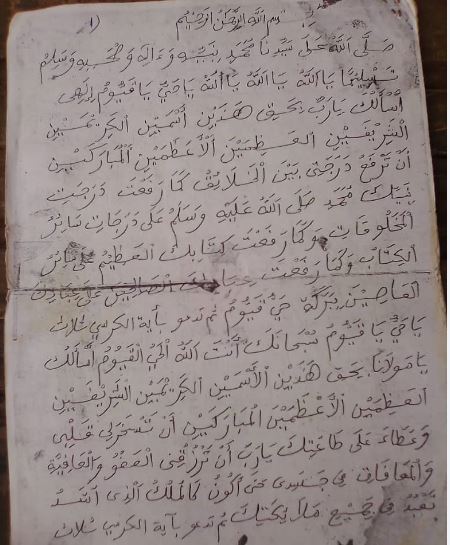 بسم الله الرحمن الرحيم (1
صَلَّى اللَّهُ عَلَى سَيِّدِنَا مُحَمَّدٍ نَبِيِّهِ وَءَالِهِ وَصَحْبِهِ وَسَلِّمْ
تَسْلِيمًا يَا اللَّهُ يَا اللَّهُ يَا اللَّهُ يَا حَيُّ يَا قَيُّومُ إِلَهِي
أَسْأَلُكَ يَا رَبِّ بِحَقِّ هَذَيْنِ أَسْمَيْنِ الْكَرِيْمَيْنِ
الْشَّرِيفَيْنِ الْعَظِيمَيْنِ الْأَعْظَمَيْنِ الْمُبَارَكَيْنِ
أَنْ تَرْفَعَ دَرَجَتِي بَيْنَ الْخَلَائِقِ كَمَا رَفَعْتَ دَرَجَتَ
نَبِيِّكَ مُحَمَّدٍ صَلَّى اللَّهُ عَلَيْهِ وَسَلَّمْ عَلَى دَرَجَاتِ سَائِرِ
الْمَخْلُوقَاتِ وَكَمَا رَفَعْتَ كِتَابِكَ الْعَظِيمْ عَلَى سَائِرِ
الْكِتَابْ وَكَمَا رَفَعْتَ الصَّالِحِينَ عَلَى
الْعَاصِينَ بَرَكَةِ حَيُّ قَيُّومُ ثم تدعو بأية الكرسي ثلاث
يَا حَيُّ يَا قَيُّومُ سُبْحَانَكَ أَنْتَ اللَّهُ الْحَيُّ الْقَيُّومُ أَسْأَلُكَ
يَا مَوْلَانَا بِحَقِّ هَذَيْنِ الْأَسْمَيْنِ الْكَرِيْمَيْنِ الشَّرِيفَيْنِ
الْعَظِيمَيْنِ الْأَعْظَمَيْنِ الْمُبَارَكَيْنِ أَنْ تُسَخِّرَلِي قَلْبِي
عَلَى طَاعَتِكَ يَا رَبِّ أَنْ تَرْزُقَنِي الْعَفْوَ وَالْعَافِيَةَ
وَالْمُعَافَاتِ فِي جَسَدِي حَتَّى أَكُونُ كَالْمَلَكْ الَّذِي
فِي جَمِيعِ ثم تدعو بأية الكرسي ثلاث